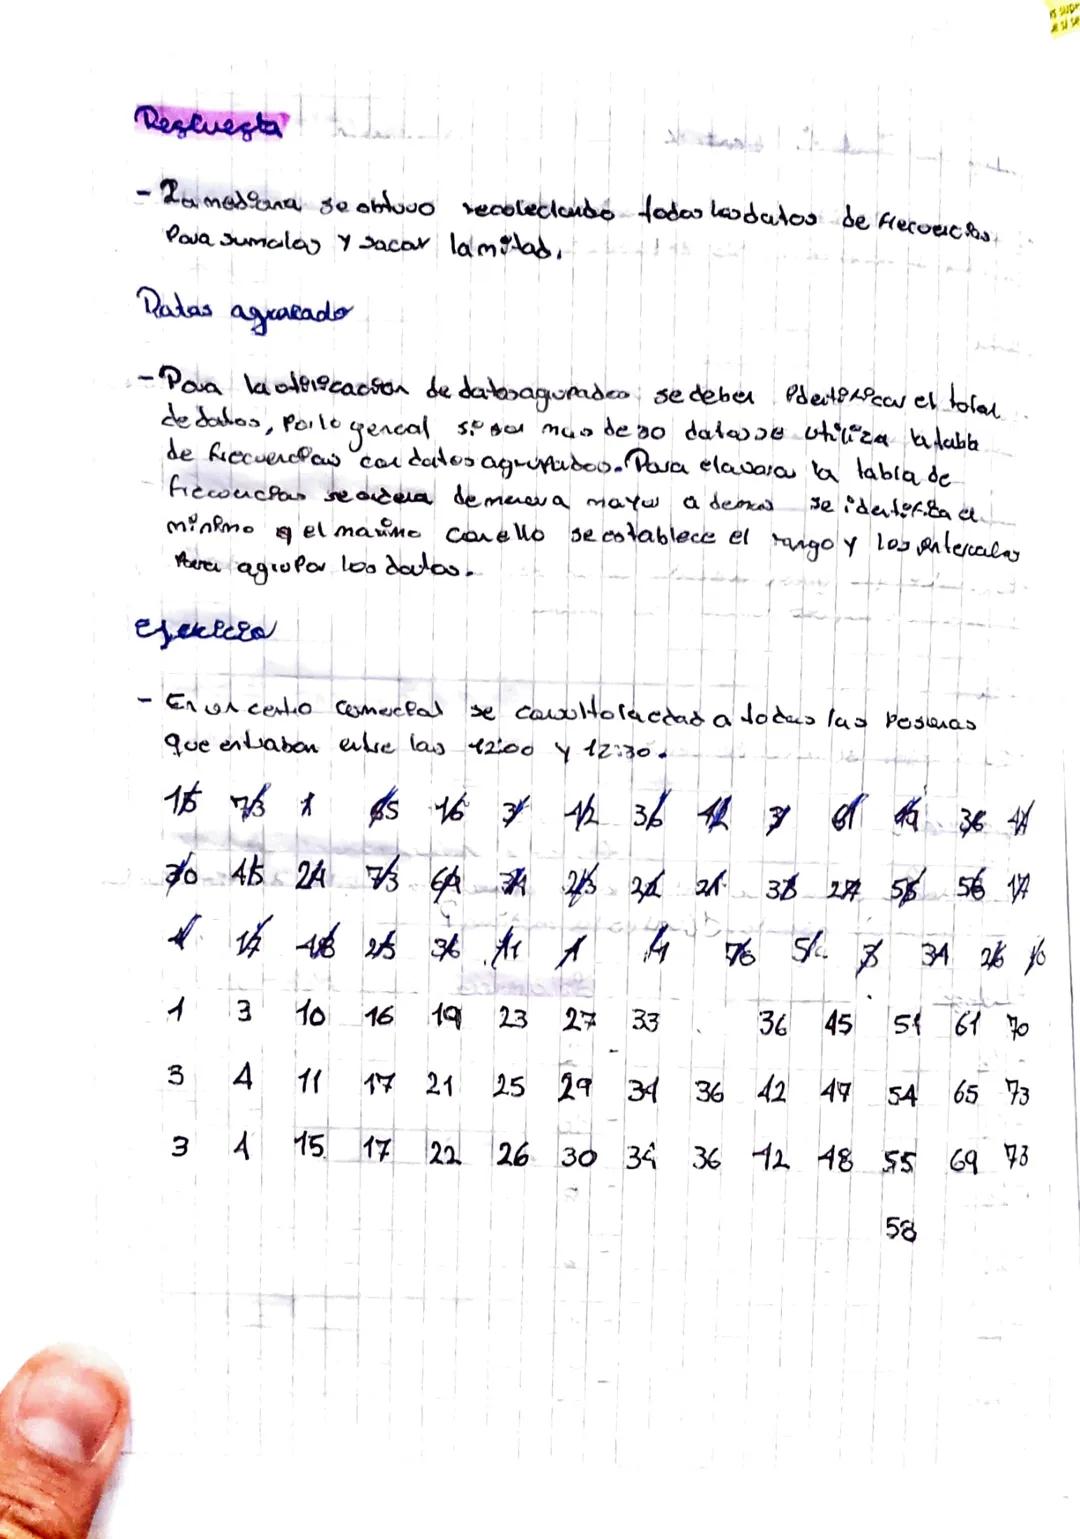 Respuesta
- La mediana se obtuvo recolectando todos los datos de frecuencias
Para sumalas y sacar la mitad.
Datos agrupado
- Para la de datos agrupados se deber identificar el total
de datos, Por lo general si son mas de 30 datos se utiliza la tabla
de frecuencias con datos agrupados. Para elavora la tabla de
frecuencias se ordena de menera mayor a demas se identifica el
minimo y el maximo con ello se establece el rango y los intercalas
Para agrupar los datos.
Ejercicio
- En un centro comercial se consulto la edad a todas las Personas
que entraban entre las 12:00 y 12:30.
15 73 1 65 16 3 42 36 42 3 61 19 36 47
30 45 21 73 69 34 23 22 21 33 27 55 58 17
4 17 48 25 36 11 1 4 70 54 3 34 26 10
1 3 10 16 19 23 27 33 36 45 51 61 70
3 4 11 17 21 25 29 34 36 42 47 54 65 73
3 4 15 17 22 26 30 34 36 42 48 55 69 73
58